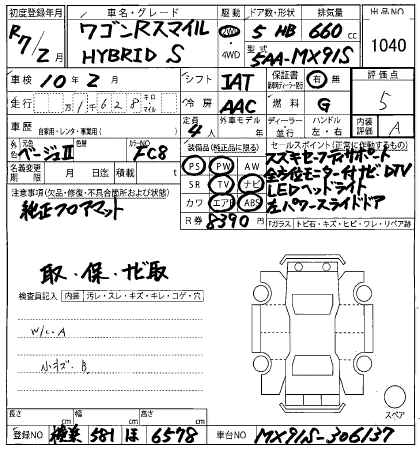 初度登録年月 車名・グレード 駆動 ドア数・形状 排気量 出品NO
R7/2月 ワゴンRスマイル HYBRID S 2WD・4WD 5 HB 660cc 1040
型式 5AA-MX91S
車検 10年2月 シフト IAT 保証書 有・無 評価点
走行 万1千628 キロ・マイル 冷房 AAC 燃料 G 5
車歴 自家用・レンタ・事業用( ) 定員 4人 外車モデル 年 ディーラー・並行 ハンドル 左・右 内装評価 A
外色 元色 ベージュII 色替 カラーNO FC8 装備品(純正品に限る) セールスポイント(正常に作動するもの)
名義変更期限 月 日 積載 t PS PW AW スズキセーフティサポート
注意事項(欠品・修復・不具合箇所および状態) SR TV ナビ 全方位モニター付ナビDTV
純正フロアマット カワ エアB ABS LEDヘッドライト
R券 8390円 左パワースライドドア
Fガラス トビ石・キズ・ヒビ・ワレ・リペア跡
取・保・ナビ取
検査員記入 内装 汚レ・スレ・キズ・キレ・コゲ・穴
W/C A
小キズ・B
スペア
長さ cm 幅 cm 高さ cm
登録NO 581 ほ 6578 車台NO MX91S-306137